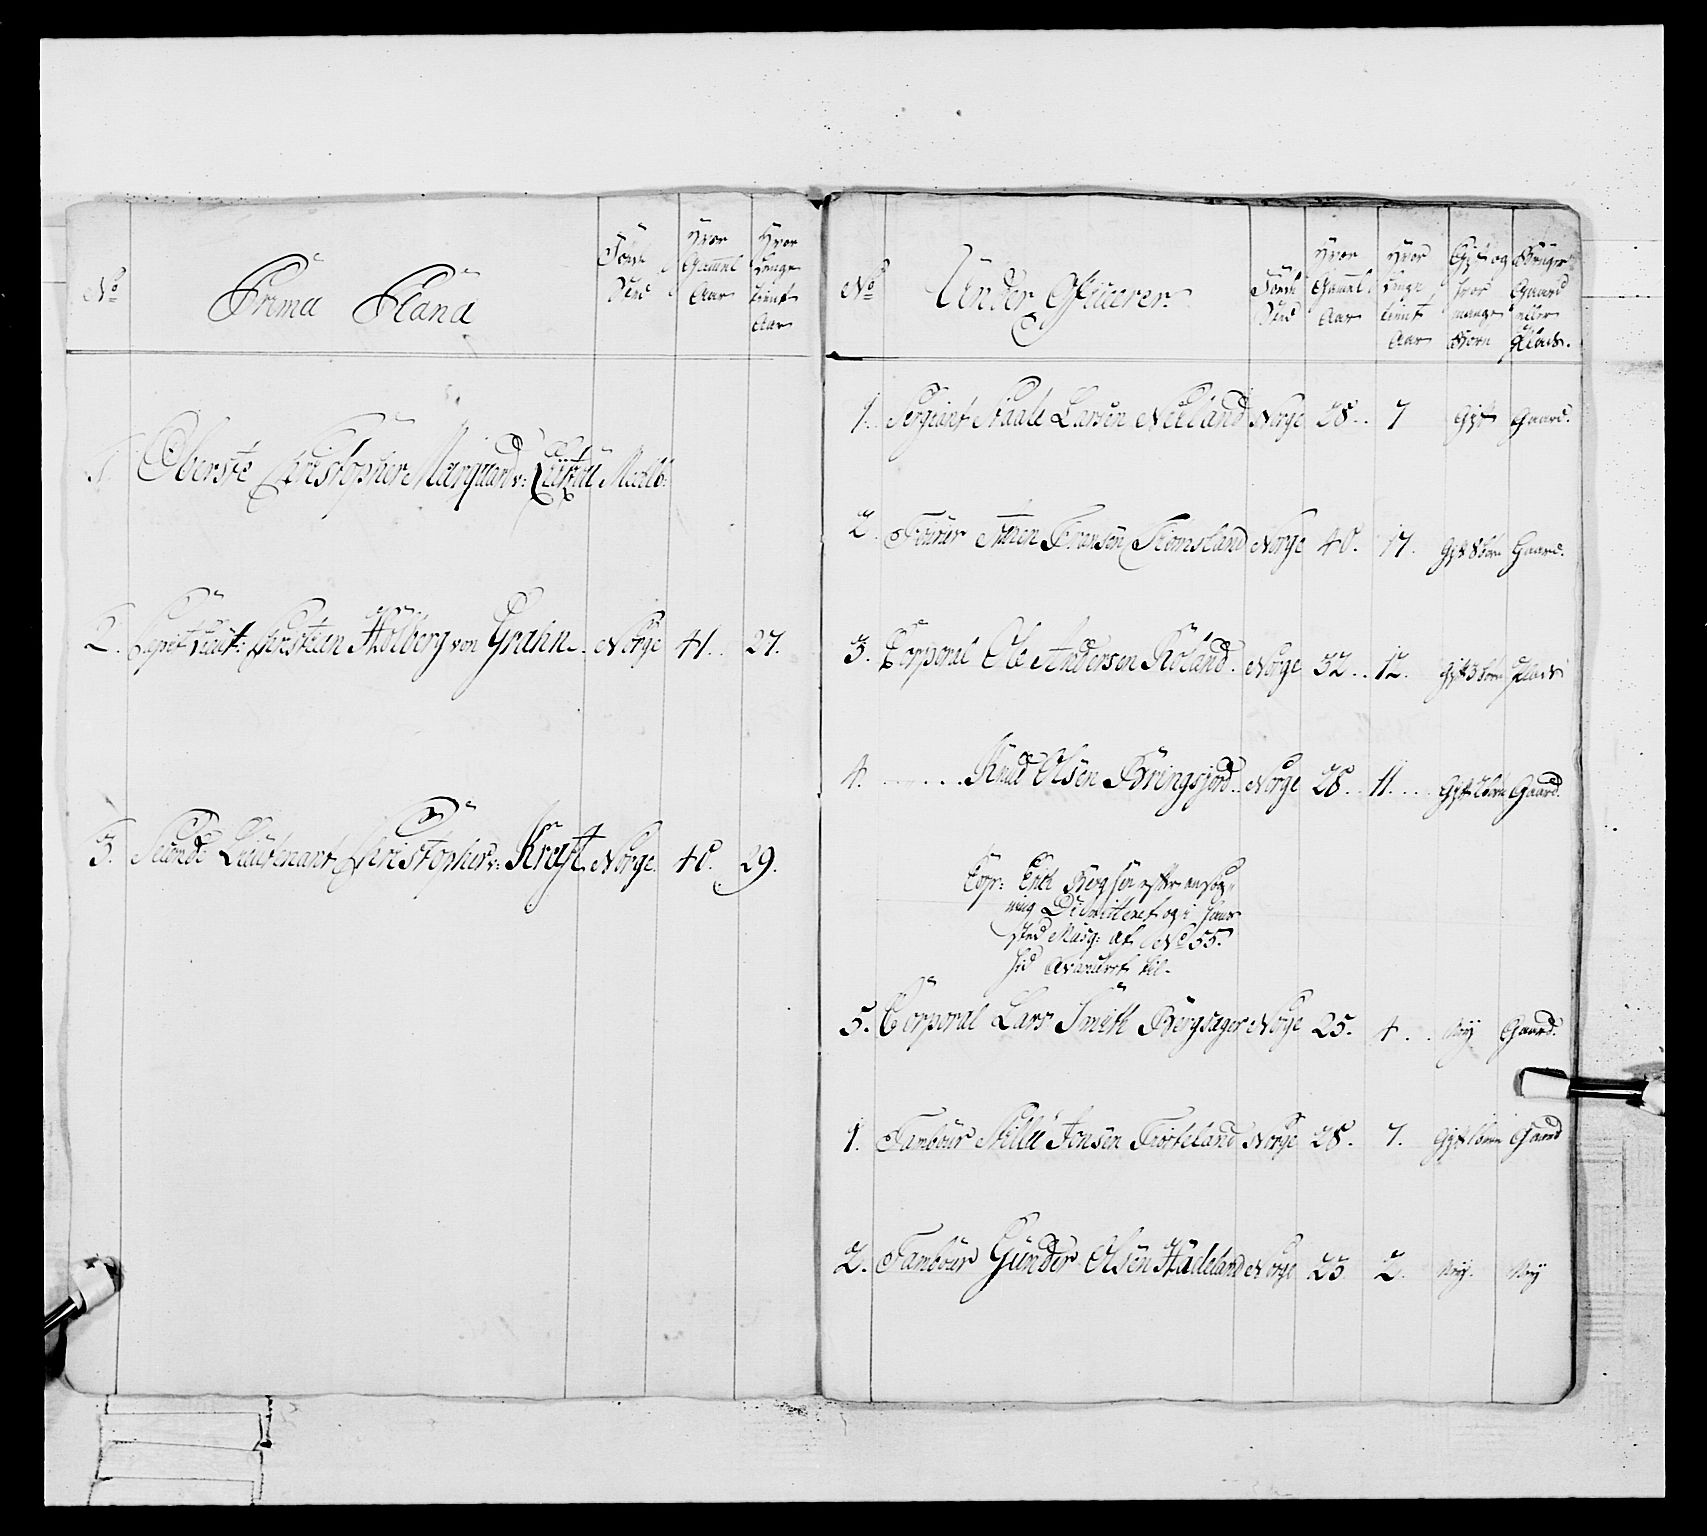 No
Prima Plana
Føds Sted
Hvor Gammel Aar
Hvor Længe tient Aar
1. Oberste Christopher Marquard v: Lützau Meckb:
2. Capit Lieut: Christian Holberg von Grahn. Norge 41. 27.
3. Second Lieutenant Christopher v: Kraft Norge. 48. 29.
No
Under Officerer
Føds Sted
Hvor Gammel Aar
Hvor Længe tient Aar
Gift og hvor mange Børn
Bruger Gaard eller Plads.
1. Sergiant Staale Larsen Netland Norge 28. 7 Gift Gaard.
2. Fourer Svend Tronsen Norge 40. 17. Gift 8 børn Gaard.
3. Corporal Ole Andersen Röland. Norge 32. 12. Gift 3 børn Plads
4. Knud Olsen Bringsjord. Norge 28. 11. Gift 2 børn Gaard.
Corp: Erich Berg er efter ansøg-
ning Dimitteret og i hans
sted Musq: af No 55.
hid Avanceret til.
5. Corporal Lars Smith Bergsager Norge 25. 4. Nei Gaard.
1. Tambour Nille Jonsen Norge 28. 7. Gift 1 barn Gaard
2. Tambour Gunder Olsen Hadeland Norge 23 2. Nei. Nei